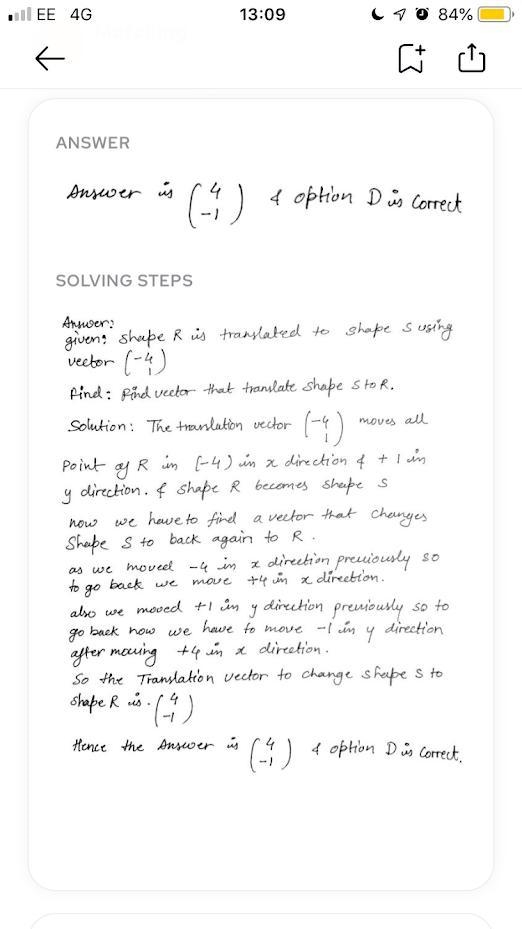 EE 4G 13:09 84%
ANSWER
Answer is (4 -1) & option D is correct
SOLVING STEPS
Answer:
given: shape R is translated to shape S using
vector (-4 1)
Find: Find vector that translate shape S to R.
Solution: The translation vector (-4 1) moves all
Point of R in (-4) in x direction & +1 in
y direction. & shape R becomes shape S
now we have to find a vector that changes
Shape S to back again to R.
as we moved -4 in x direction previously so
to go back we move +4 in x direction.
also we moved +1 in y direction previously so to
go back now we have to move -1 in y direction
after moving +4 in x direction.
So the Translation vector to change shape S to
shape R is. (4 -1)
Hence the Answer is (4 -1) & option D is correct.